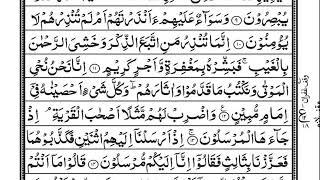 يُبْصِرُوْنَ ۹ وَسَوَآءٌ عَلَيْهِمْ ءَاَنْذَرْتَهُمْ اَمْ لَمْ تُنْذِرْهُمْ لَا
يُؤْمِنُوْنَ ۱۰ اِنَّمَا تُنْذِرُ مَنِ اتَّبَعَ الذِّكْرَ وَخَشِيَ الرَّحْمٰنَ
بِالْغَيْبِ ۚ فَبَشِّرْهُ بِمَغْفِرَةٍ وَّاَجْرٍ كَرِيْمٍ ۱۱ اِنَّا نَحْنُ نُحْيِ
الْمَوْتٰى وَنَكْتُبُ مَا قَدَّمُوْا وَاٰثَارَهُمْ ؕ وَكُلَّ شَيْءٍ اَحْصَيْنٰهُ فِيْٓ
اِمَامٍ مُّبِيْنٍ ۱۲ وَاضْرِبْ لَهُمْ مَّثَلًا اَصْحٰبَ الْقَرْيَةِ ۘ اِذْ
جَآءَهَا الْمُرْسَلُوْنَ ۱۳ اِذْ اَرْسَلْنَآ اِلَيْهِمُ اثْنَيْنِ فَكَذَّبُوْهُمَا
فَعَزَّزْنَا بِثَالِثٍ فَقَالُوْٓا اِنَّآ اِلَيْكُمْ مُّرْسَلُوْنَ ۱۴ قَالُوْا مَآ اَنْتُمْ